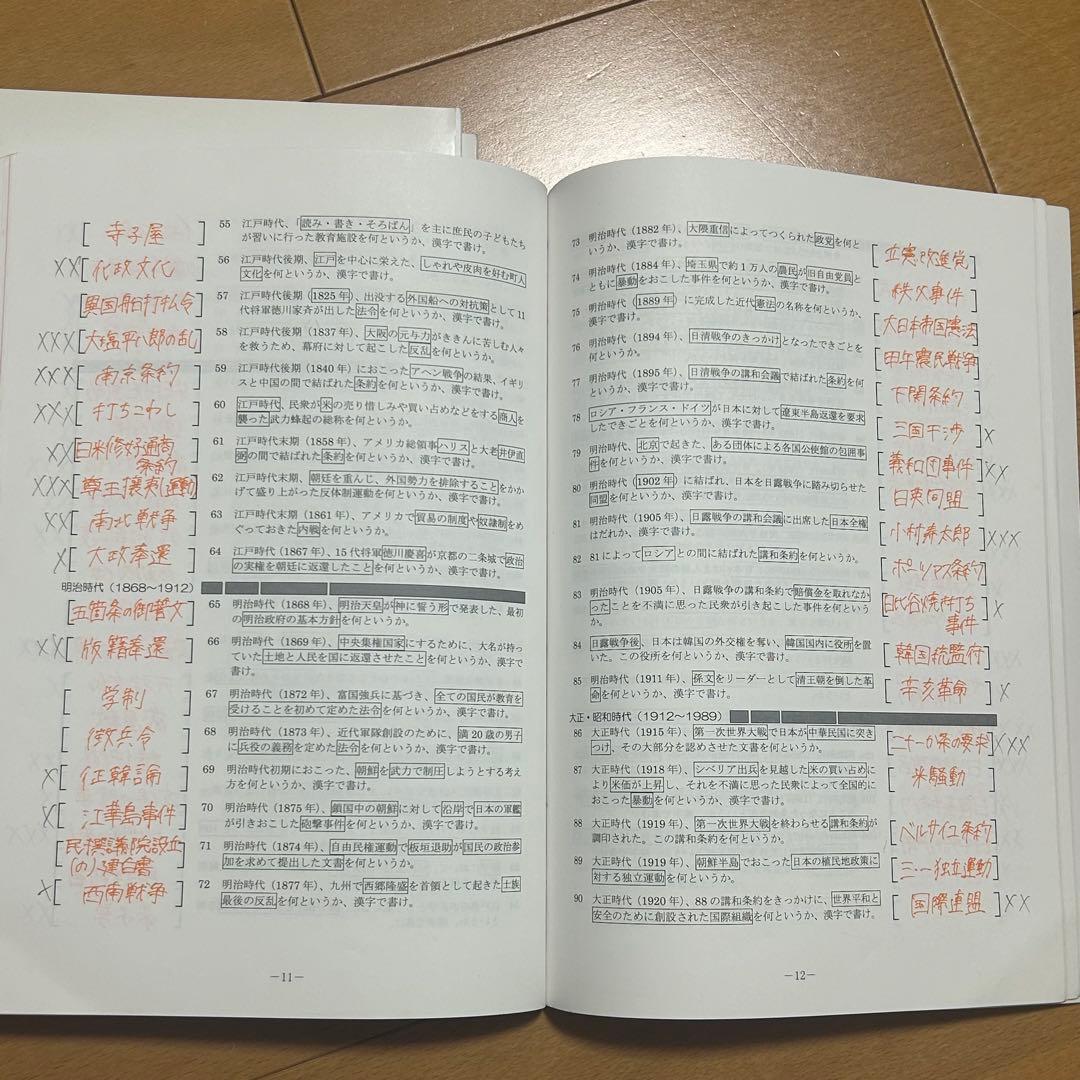 [寺子屋] 55 江戸時代、「読み・書き・そろばん」を主に庶民の子どもたち
が習いに行った教育施設を何というか、漢字で書け。
××[化政文化] 56 江戸時代後期、江戸を中心に栄えた、しゃれや皮肉を好む町人
文化を何というか、漢字で書け。
[異国船打払令] 57 江戸時代後期（1825年）、出没する外国船への対抗策として11
代将軍徳川家斉が出した法令を何というか、漢字で書け。
×××[大塩平八郎の乱] 58 江戸時代後期（1837年）、大阪の元与力がききんに苦しむ人々
を救うため、幕府に対して起こした反乱を何というか、漢字で書け。
×××[南京条約] 59 江戸時代後期（1840年）におこったアヘン戦争の結果、イギリ
スと中国の間で結ばれた条約を何というか、漢字で書け。
××[打ちこわし] 60 江戸時代、民衆が米の売り惜しみや買い占めなどをする商人を
襲った武力蜂起の総称を何というか、漢字で書け。
××[日米修好通商
条約] 61 江戸時代末期（1858年）、アメリカ総領事ハリスと大老井伊直
弼の間で結ばれた条約を何というか、漢字で書け。
×××[尊王攘夷運動] 62 江戸時代末期、朝廷を重んじ、外国勢力を排除することをかか
げて盛り上がった反体制運動を何というか、漢字で書け。
××[南北戦争] 63 江戸時代末期（1861年）、アメリカで貿易の制度や奴隷制をめ
ぐっておきた内戦を何というか。
×[大政奉還] 64 江戸時代（1867年）、15代将軍徳川慶喜が京都の二条城で政治
の実権を朝廷に返還したことを何というか、漢字で書け。
明治時代（1868〜1912）
[五箇条の御誓文] 65 明治時代（1868年）、明治天皇が神に誓う形で発表した、最初
の明治政府の基本方針を何というか。
××[版籍奉還] 66 明治時代（1869年）、中央集権国家にするために、大名が持っ
ていた土地と人民を国に返還させたことを何というか、漢字で
書け。
[学制] 67 明治時代（1872年）、富国強兵に基づき、全ての国民が教育を
受けることを初めて定めた法令を何というか、漢字で書け。
[徴兵令] 68 明治時代（1873年）、近代軍隊創設のために、満20歳の男子
に兵役の義務を定めた法令を何というか、漢字で書け。
×[征韓論] 69 明治時代初期におこった、朝鮮を武力で制圧しようとする考え
方を何というか、漢字で書け。
×[江華島事件] 70 明治時代（1875年）、鎖国中の朝鮮に対して沿岸で日本の軍艦
が引きおこした砲撃事件を何というか、漢字で書け。
[民撰議院設立
(の)建白書] 71 明治時代（1874年）、自由民権運動で板垣退助が国民の政治参
加を求めて提出した文書を何というか、漢字で書け。
×[西南戦争] 72 明治時代（1877年）、九州で西郷隆盛を首領として起きた士族
最後の反乱を何というか、漢字で書け。
－11－
73 明治時代（1882年）、大隈重信によってつくられた政党を何と
いうか、漢字で書け。 [立憲改進党]
74 明治時代（1884年）、埼玉県で約1万人の農民が旧自由党員と
ともに暴動をおこした事件を何というか、漢字で書け。 [秩父事件]
75 明治時代（1889年）に完成した近代憲法の名称を何というか、
漢字で書け。 [大日本帝国憲法]
76 明治時代（1894年）、日清戦争のきっかけとなったできごとを
何というか。 [甲午農民戦争]
77 明治時代（1895年）、日清戦争の講和会議で結ばれた条約を何
というか、漢字で書け。 [下関条約]
78 ロシア・フランス・ドイツが日本に対して遼東半島返還を要求
したできごとを何というか、漢字で書け。 [三国干渉]×
79 明治時代、北京で起きた、ある団体による各国公使館の包囲事
件を何というか、漢字で書け。 [義和団事件]××
80 明治時代（1902年）に結ばれ、日本を日露戦争に踏み切らせた
同盟を何というか、漢字で書け。 [日英同盟]
81 明治時代（1905年）、日露戦争の講和会議に出席した日本全権
はだれか、漢字で書け。 [小村寿太郎]×××
82 81によってロシアとの間に結ばれた講和条約を何というか。 [ポーツマス条約]
83 明治時代（1905年）、日露戦争の講和条約で賠償金を取れなか
ったことを不満に思った民衆が引き起こした事件を何という
か。 [日比谷焼打ち
事件]
84 日露戦争後、日本は韓国の外交権を奪い、韓国国内に役所を置
いた。この役所を何というか、漢字で書け。 [韓国統監府]
85 明治時代（1911年）、孫文をリーダーとして清王朝を倒した革
命を何というか、漢字で書け。 [辛亥革命]×
大正・昭和時代（1912〜1989）
86 大正時代（1915年）、第一次世界大戦で日本が中華民国に突き
つけ、その大部分を認めさせた文書を何というか。 [二十一か条の要求]×××
87 大正時代（1918年）、シベリア出兵を見越した米の買い占めに
より米価が上昇し、それを不満に思った民衆によって全国的に
おこった暴動を何というか、漢字で書け。 [米騒動]
88 大正時代（1919年）、第一次世界大戦を終わらせる講和条約が
調印された。この講和条約を何というか。 [ベルサイユ条約]
89 大正時代（1919年）、朝鮮半島でおこった日本の植民地政策に
対する独立運動を何というか。 [三・一独立運動]
90 大正時代（1920年）、88の講和条約をきっかけに、世界平和と
安全のために創設された国際組織を何というか、漢字で書け。 [国際連盟]××
－12－